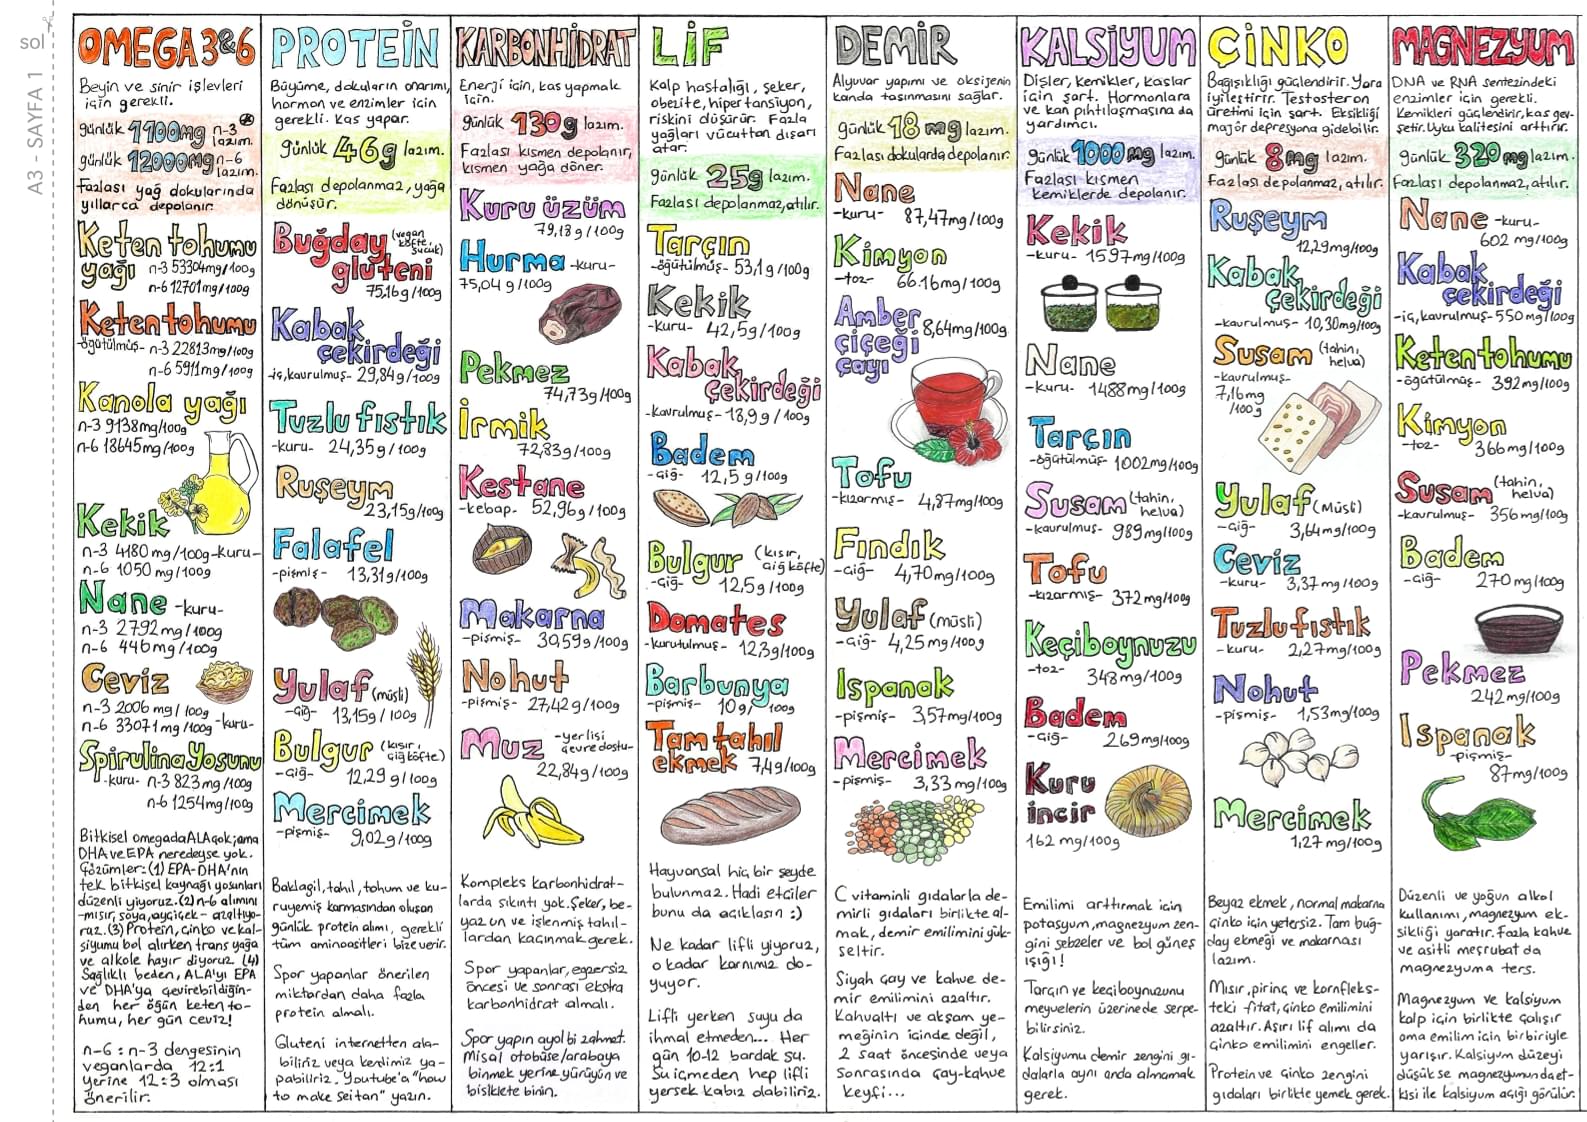 sol
A3 - SAYFA 1
OMEGA 3&6
Beyin ve sinir işlevleri
için gerekli.
günlük 1100mg n-3 lazım.
günlük 12000mg n-6 lazım.
Fazlası yağ dokularında
yıllarca depolanır.
Keten tohumu
yağı n-3 53304mg/100g
n-6 12701mg/100g
Keten tohumu
-öğütülmüş- n-3 22813mg/100g
n-6 5911mg/100g
Kanola yağı
n-3 9138mg/100g
n-6 18645mg/100g
Kekik
n-3 4180 mg/100g -kuru-
n-6 1050 mg/100g
Nane -kuru-
n-3 2792mg/100g
n-6 446mg/100g
Ceviz
n-3 2006 mg/100g
n-6 33071mg/100g -kuru-
Spirulina Yosunu
-kuru- n-3 823mg/100g
n-6 1254mg/100g
Bitkisel omegada ALA çok; ama
DHA ve EPA neredeyse yok.
Çözümler: (1) EPA-DHA'nın
tek bitkisel kaynağı yosunları
düzenli yiyoruz. (2) n-6 alımını
-mısır, soya, ayçiçek- azaltıyo-
ruz. (3) Protein, çinko ve kal-
siyumu bol alırken trans yağa
ve alkole hayır diyoruz. (4)
Sağlıklı beden, ALA'yı EPA
ve DHA'ya çevirebildiğin-
den her öğün keten to-
humu, her gün ceviz!
n-6 : n-3 dengesinin
veganlarda 12:1
yerine 12:3 olması
önerilir.
PROTEİN
Büyüme, dokuların onarımı,
hormon ve enzimler için
gerekli. Kas yapar.
günlük 46g lazım.
Fazlası depolanmaz, yağa
dönüşür.
Buğday (vegan köfte, sucuk)
gluteni
75,16g/100g
Kabak
çekirdeği
-iç, kavrulmuş- 29,84g/100g
Tuzlu fıstık
-kuru- 24,35g/100g
Ruşeym
23,15g/100g
Falafel
-pişmiş- 13,31g/100g
Yulaf (müsli)
-çiğ- 13,15g/100g
Bulgur (kısır, çiğköfte)
-çiğ- 12,29 g/100g
Mercimek
-pişmiş- 9,02g/100g
Baklagil, tahıl, tohum ve ku-
ruyemiş karmasından oluşan
günlük protein alımı, gerekli
tüm aminoasitleri bize verir.
Spor yapanlar önerilen
miktardan daha fazla
protein almalı.
Gluteni internetten ala-
biliriz veya kendimiz ya-
pabiliriz. Youtube'a "how
to make seitan" yazın.
KARBONHİDRAT
Enerji için, kas yapmak
için.
günlük 130g lazım.
Fazlası kısmen depolanır,
kısmen yağa döner.
Kuru üzüm
79,18g/100g
Hurma -kuru-
75,04 g/100g
Pekmez
74,73g/100g
İrmik
72,83g/100g
Kestane
-kebap- 52,96g/100g
Makarna
-pişmiş- 30,59g/100g
Nohut
-pişmiş- 27,42g/100g
Muz -yerlisi çevre dostu-
22,84g/100g
Kompleks karbonhidrat-
larda sıkıntı yok. Şeker, be-
yaz un ve işlenmiş tahıl-
lardan kaçınmak gerek.
Spor yapanlar, egzersiz
öncesi ve sonrası ekstra
karbonhidrat almalı.
Spor yapın ayol bi zahmet.
Misal otobüse/arabaya
binmek yerine yürüyün ve
bisiklete binin.
LİF
Kalp hastalığı, şeker,
obezite, hipertansiyon,
riskini düşürür. Fazla
yağları vücuttan dışarı
atar.
günlük 25g lazım.
Fazlası depolanmaz, atılır.
Tarçın
-öğütülmüş- 53,1g/100g
Kekik
-kuru- 42,5g/100g
Kabak
çekirdeği
-kavrulmuş- 18,9g/100g
Badem
-çiğ- 12,5 g/100g
Bulgur (kısır, çiğ köfte)
-çiğ- 12,5g/100g
Domates
-kurutulmuş- 12,3g/100g
Barbunya
-pişmiş- 10g/100g
Tam tahıl
ekmek 7,49g/100g
Hayvansal hiç bir şeyde
bulunmaz. Hadi etçiler
bunu da açıklasın :)
Ne kadar lifli yiyoruz,
o kadar karnımız do-
yuyor.
Lifli yerken suyu da
ihmal etmeden... Her
gün 10-12 bardak su.
Su içmeden hep lifli
yersek kabız olabiliriz.
DEMİR
Alyuvar yapımı ve oksijenin
kanda taşınmasını sağlar.
günlük 18 mg lazım.
Fazlası dokularda depolanır.
Nane
-kuru- 87,47mg/100g
Kimyon
-toz- 66.16mg/100g
Amber 8,64mg/100g
çiçeği
çayı
Tofu
-kızarmış- 4,87mg/100g
Fındık
-çiğ- 4,70mg/100g
Yulaf (müsli)
-çiğ- 4,25mg/100g
Ispanak
-pişmiş- 3,57mg/100g
Mercimek
-pişmiş- 3,33 mg/100g
C vitaminli gıdalarla de-
mirli gıdaları birlikte al-
mak, demir emilimini yük-
seltir.
Siyah çay ve kahve de-
mir emilimini azaltır.
Kahvaltı ve akşam ye-
meğinin içinde değil,
2 saat öncesinde veya
sonrasında çay-kahve
keyfi...
KALSİYUM
Dişler, kemikler, kaslar
için şart. Hormonlara
ve kan pıhtılaşmasına da
yardımcı.
günlük 1000mg lazım.
Fazlası kısmen
kemiklerde depolanır.
Kekik
-kuru- 1597mg/100g
Nane
-kuru- 1488mg/100g
Tarçın
-öğütülmüş- 1002mg/100g
Susam (tahin, helva)
-kavrulmuş- 989mg/100g
Tofu
-kızarmış- 372mg/100g
Keçiboynuzu
-toz- 348mg/100g
Badem
-çiğ- 269mg/100g
Kuru
incir
162 mg/100g
Emilimi arttırmak için
potasyum, magnezyum zen-
gini sebzeler ve bol güneş
ışığı!
Tarçın ve keçiboynuzunu
meyvelerin üzerine de serpe-
bilirsiniz.
Kalsiyumu demir zengini gı-
dalarla aynı anda almamak
gerek.
ÇİNKO
Bağışıklığı güçlendirir. Yara
iyileştirir. Testosteron
üretimi için şart. Eksikliği
majör depresyona gidebilir.
günlük 8mg lazım.
Fazlası depolanmaz, atılır.
Ruşeym
12,29mg/100g
Kabak
çekirdeği
-kavrulmuş- 10,30mg/100g
Susam (tahin, helva)
-kavrulmuş-
7,16mg
/100g
Yulaf (Müsli)
-çiğ- 3,64mg/100g
Ceviz
-kuru- 3,37mg/100g
Tuzlu fıstık
-kuru- 2,27mg/100g
Nohut
-pişmiş- 1,53mg/100g
Mercimek
1,27 mg/100g
Beyaz ekmek, normal makarna
çinko için yetersiz. Tam buğ-
day ekmeği ve makarnası
lazım.
Mısır, pirinç ve kornfleks-
teki fitat, çinko emilimini
azaltır. Aşırı lif alımı da
çinko emilimini engeller.
Protein ve çinko zengini
gıdaları birlikte yemek gerek.
MAGNEZYUM
DNA ve RNA sentezindeki
enzimler için gerekli.
Kemikleri güçlendirir, kas gev-
şetir. Uyku kalitesini arttırır.
günlük 320mg lazım.
Fazlası depolanmaz, atılır.
Nane -kuru-
602 mg/100g
Kabak
çekirdeği
-iç, kavrulmuş- 550 mg/100g
Keten tohumu
-öğütülmüş- 392mg/100g
Kimyon
-toz- 366mg/100g
Susam (tahin, helva)
-kavrulmuş- 356mg/100g
Badem
-çiğ- 270mg/100g
Pekmez
242mg/100g
Ispanak
-pişmiş-
87mg/100g
Düzenli ve yoğun alkol
kullanımı, magnezyum ek-
sikliği yaratır. Fazla kahve
ve asitli meşrubat da
magnezyuma ters.
Magnezyum ve kalsiyum
kalp için birlikte çalışır
ama emilim için birbiriyle
yarışır. Kalsiyum düzeyi
düşükse magnezyumunda et-
kisi ile kalsiyum açığı görülür.